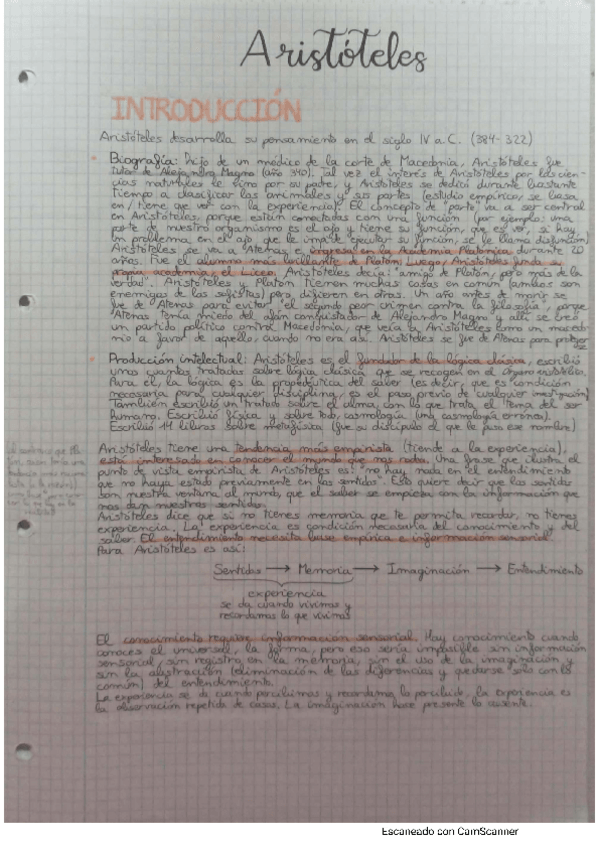 Aristóteles
INTRODUCCIÓN
Aristóteles desarrolla su pensamiento en el siglo IV a.C. (384-322)
Biografía: Hijo de un médico de la corte de Macedonia, Aristóteles fue
tutor de Alejandro Magno (año 340). Tal vez el interés de Aristóteles por las cien-
cias naturales le vino por su padre, y Aristóteles se dedicó durante bastante
tiempo a clasificar los animales y sus partes (estudio empírico, se basa
en / tiene que ver con la experiencia). El concepto de "parte" va a ser central
en Aristóteles, porque están conectadas con una función (por ejemplo: una
parte de nuestro organismo es el ojo y tiene su función, que es ver, si hay
un problema en el ojo que le impide ejecutar su función, se le llama disfunción)
Aristóteles se va a Atenas e ingresa en la Academia Platónica durante 20
años. Fue el alumno más brillante de Platón. Luego, Aristóteles funda su
propia academia, el Liceo. Aristóteles decía: "amigo de Platón, pero más de la
verdad". Aristóteles y Platón tienen muchas cosas en común (ambos son
enemigos de los sofistas) pero difieren en otras. Un año antes de morir se
fue de Atenas para evitar "el segundo peor crimen contra la filosofía", porque
Atenas tenía miedo del afán conquistador de Alejandro Magno y allí se creó
un partido político contra Macedonia, que veía a Aristóteles como un macedo-
nio a favor de aquello, cuando no era así. Aristóteles se fue de Atenas para protegerse
Producción intelectual: Aristóteles es el fundador de la lógica clásica, escribió
unos cuantos tratados sobre lógica clásica que se recogen en el
Para él, la lógica es la propedéutica del saber (es decir, que es condición
necesaria para cualquier disciplina, es el paso previo de cualquier investigación)
También escribió un tratado sobre el alma, con lo que trata el tema del ser
humano. Escribió física y sobre todo, cosmología (una cosmología errónea).
Escribió 14 libros sobre metafísica (fue su discípulo el que le puso ese nombre)
Aristóteles tiene una tendencia más empirista (tiende a la experiencia),
está interesado en conocer el mundo que nos rodea. Una frase que ilustra el
punto de vista empirista de Aristóteles es: "no hay nada en el entendimiento
que no haya estado previamente en los sentidos". Esto quiere decir que los sentidos
son nuestra ventana al mundo, que el saber se empieza con la información que
nos dan nuestros sentidos.
Aristóteles dice que si no tienes memoria que te permita recordar, no tienes
experiencia. La experiencia es condición necesaria del conocimiento y del
saber. El entendimiento necesita base empírica e información sensorial.
Para Aristóteles es así:
Sentidos → Memoria → Imaginación → Entendimiento
experiencia
se da cuando vivimos y
recordamos lo que vivimos
El conocimiento requiere información sensorial. Hay conocimiento cuando
conoces el universal, la forma, pero eso sería imposible sin información
sensorial, sin registro en la memoria, sin el uso de la imaginación y
sin la abstracción (eliminación de las diferencias y quedarse solo con lo
común) del entendimiento.
La experiencia se da cuando percibimos y recordamos lo percibido, la experiencia es
la observación repetida de casos. La imaginación hace presente lo ausente.
Escaneado con CamScanner